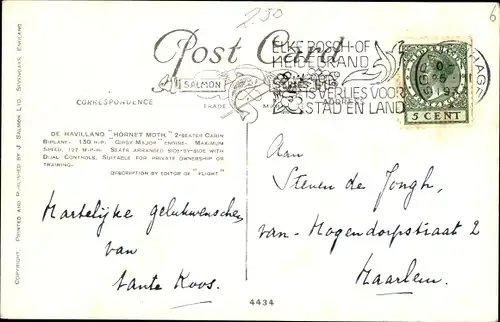 2.50
6
Post Card
SALMON
TRADE MARK
CORRESPONDENCE
ADDRESS
ELKE BOSCH-OF
HEIDEBRAND
IS VERLIES VOOR
STAD EN LAND
5 CENT
DE HAVILLAND "HORNET MOTH." 2-SEATER CABIN
BIPLANE. 130 H.P. GIPSY MAJOR ENGINE. MAXIMUM
SPEED, 127 M.P.H. SEATS ARRANGED SIDE-BY-SIDE WITH
DUAL CONTROLS. SUITABLE FOR PRIVATE OWNERSHIP OR
TRAINING.
DESCRIPTION BY EDITOR OF "FLIGHT"
Hartelijke gelukwenschen
van
tante Koos.
Aan
Steven de Jongh,
van-Hogendorpstraat 2
Haarlem.
4434
COPYRIGHT. PRINTED AND PUBLISHED BY J. SALMON LTD., SEVENOAKS, ENGLAND